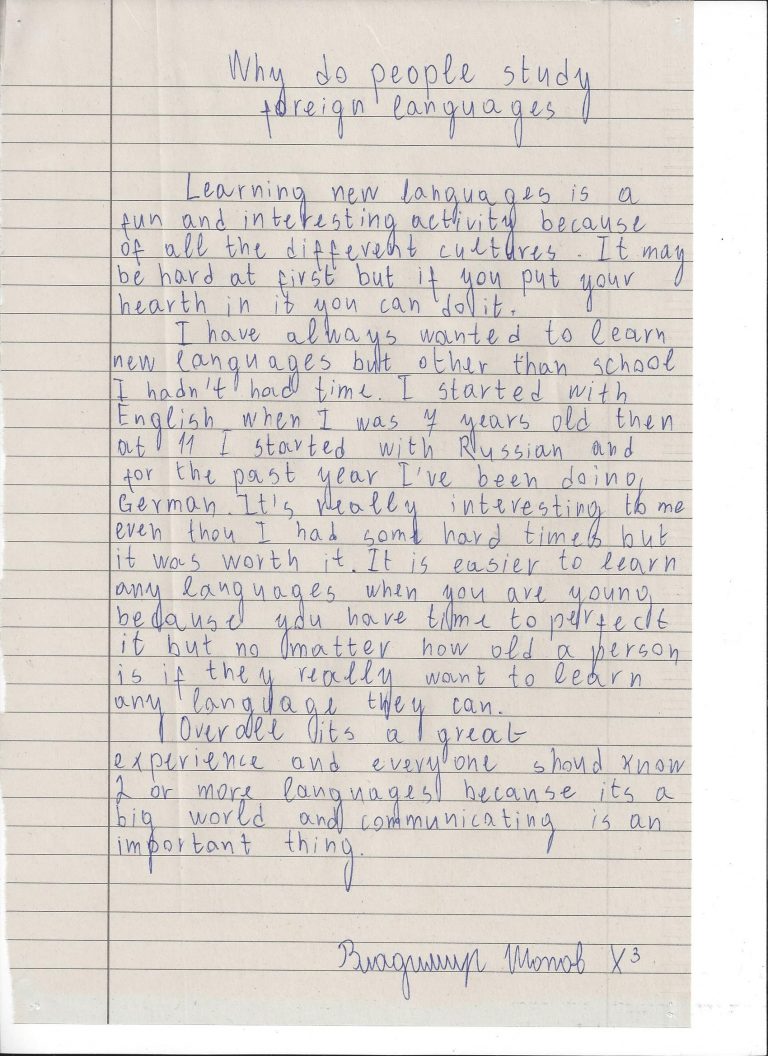 Why do people study
foreign languages
Learning new languages is a
fun and interesting activity because
of all the different cultures. It may
be hard at first but if you put your
hearth in it you can do it.
I have always wanted to learn
new languages but other than school
I hadn't had time. I started with
English when I was 7 years old then
at 11 I started with Russian and
for the past year I've been doing
German. It's really interesting to me
even thou I had some hard times but
it was worth it. It is easier to learn
any languages when you are young
because you have time to perfect
it but no matter how old a person
is if they really want to learn
any language they can.
Overall its a great
experience and everyone shoud know
2 or more languages because its a
big world and communicating is an
important thing.
Владимир X3